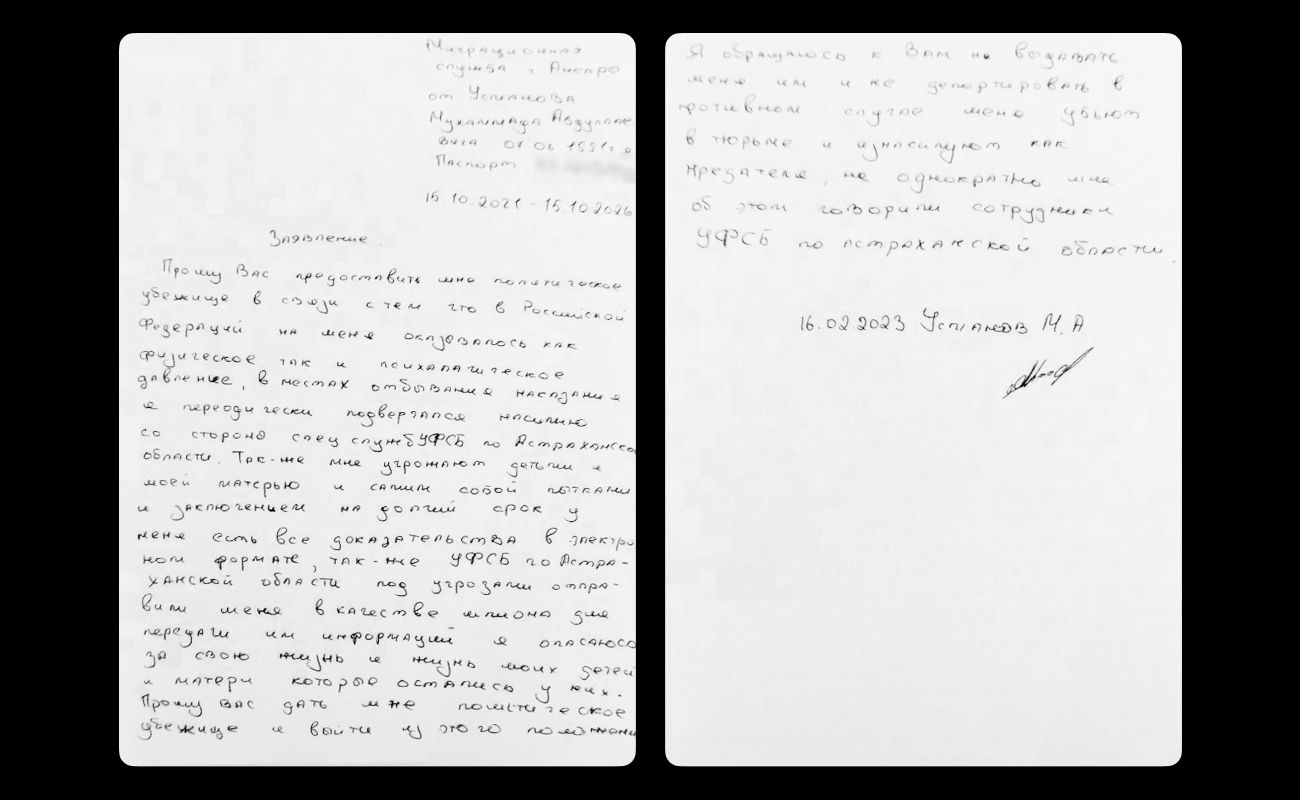 Миграционная
служба г Анкары
от Усманова
Мухаммада Абдулае
вича 01 06 1991г р
Паспорт
15.10.2021 - 15.10.2026
Заявление.
Прошу Вас предоставить мне политическое
убежище в связи с тем что в Российской
Федераций на меня оказывалось как
физическое так и психалагическое
давление, в местах отбывания наказания
я переодически подвергался насилию
со стороны спец служб УФСБ по Астраханско
области. Так-же мне угрожают детьми и
моей матерью и самим собой пытками
и заключением на долгий срок у
меня есть все доказательства в электро
ном формате, так-же УФСБ по Астра-
ханской области под угрозами отпра-
вили меня в качестве шпиона для
передачи им информаций я опасаюсь
за свою жизнь и жизнь моих детей
и матери которые остались у них.
Прошу вас дать мне политическое
убежище и выйти из этого положени
Я обращаюсь к Вам не выдавать
меня им и не депортировать в
противном случае меня убьют
в тюрьме и изнасилуют как
предателя, не однократно мне
об этом говорили сотрудники
УФСБ по Астраханской области.
16.02.2023 Усманов М.А